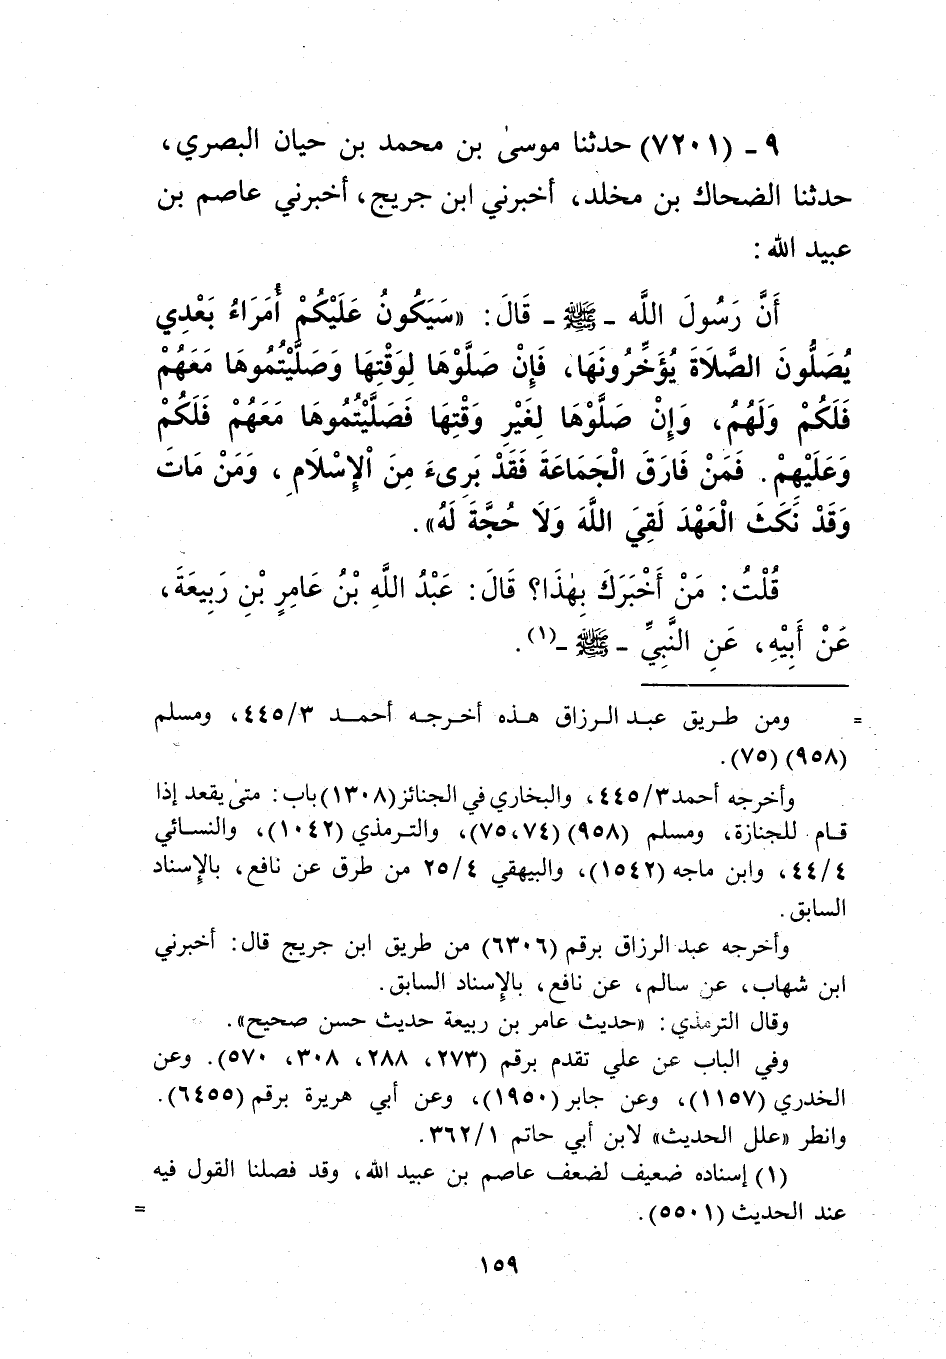 ٩ ـ (٧٢٠١) حدثنا موسىٰ بن محمد بن حيان البصري،
حدثنا الضحاك بن مخلد، أخبرني ابن جريج، أخبرني عاصم بن
عبيد الله :
أَنَّ رَسُولَ اللَّه ـ ﷺ ـ قَالَ: «سَيَكُونُ عَلَيْكُمْ أُمَرَاءُ بَعْدِي
يُصَلُّونَ الصَّلَاةَ يُؤَخِّرُونَهَا، فَإِنْ صَلَّوْهَا لِوَقْتِهَا وَصَلَّيْتُمُوهَا مَعَهُمْ
فَلَكُمْ وَلَهُمْ، وَإِنْ صَلَّوْهَا لِغَيْرِ وَقْتِهَا فَصَلَّيْتُمُوهَا مَعَهُمْ فَلَكُمْ
وَعَلَيْهِمْ. فَمَنْ فَارَقَ الْجَمَاعَةَ فَقَدْ بَرِىءَ مِنَ الْإِسْلَامِ، وَمَنْ مَاتَ
وَقَدْ نَكَثَ الْعَهْدَ لَقِيَ اللَّهَ وَلَا حُجَّةَ لَهُ».
قُلْتُ: مَنْ أَخْبَرَكَ بِهٰذَا؟ قَالَ: عَبْدُ اللَّهِ بْنُ عَامِرِ بْنِ رَبِيعَةَ،
عَنْ أَبِيْهِ، عَنِ النَّبِيِّ ـ ﷺ ـ(١).
= ومن طريق عبد الرزاق هذه أخرجه أحمد ٤٤٥/٣، ومسلم
(٩٥٨) (٧٥).
وأخرجه أحمد ٤٤٥/٣، والبخاري في الجنائز (١٣٠٨) باب: متىٰ يقعد إذا
قام للجنازة، ومسلم (٩٥٨) (٧٤، ٧٥)، والترمذي (١٠٤٢)، والنسائي
٤٤/٤، وابن ماجه (١٥٤٢)، والبيهقي ٢٥/٤ من طرق عن نافع، بالإسناد
السابق.
وأخرجه عبد الرزاق برقم (٦٣٠٦) من طريق ابن جريج قال: أخبرني
ابن شهاب، عن سالم، عن نافع، بالإسناد السابق.
وقال الترمذي: «حديث عامر بن ربيعة حديث حسن صحيح».
وفي الباب عن علي تقدم برقم (٢٧٣، ٢٨٨، ٣٠٨، ٥٧٠). وعن
الخدري (١١٥٧)، وعن جابر (١٩٥٠)، وعن أبي هريرة برقم (٦٤٥٥).
وانظر «علل الحديث» لابن أبي حاتم ٣٦٢/١.
(١) إسناده ضعيف لضعف عاصم بن عبيد الله، وقد فصلنا القول فيه
عند الحديث (٥٥٠١). =
١٥٩